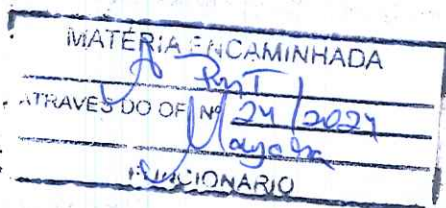 MATÉRIA ENCAMINHADA
A
ATRAVES DO OF. Nº 24/2024
FUNCIONARIO